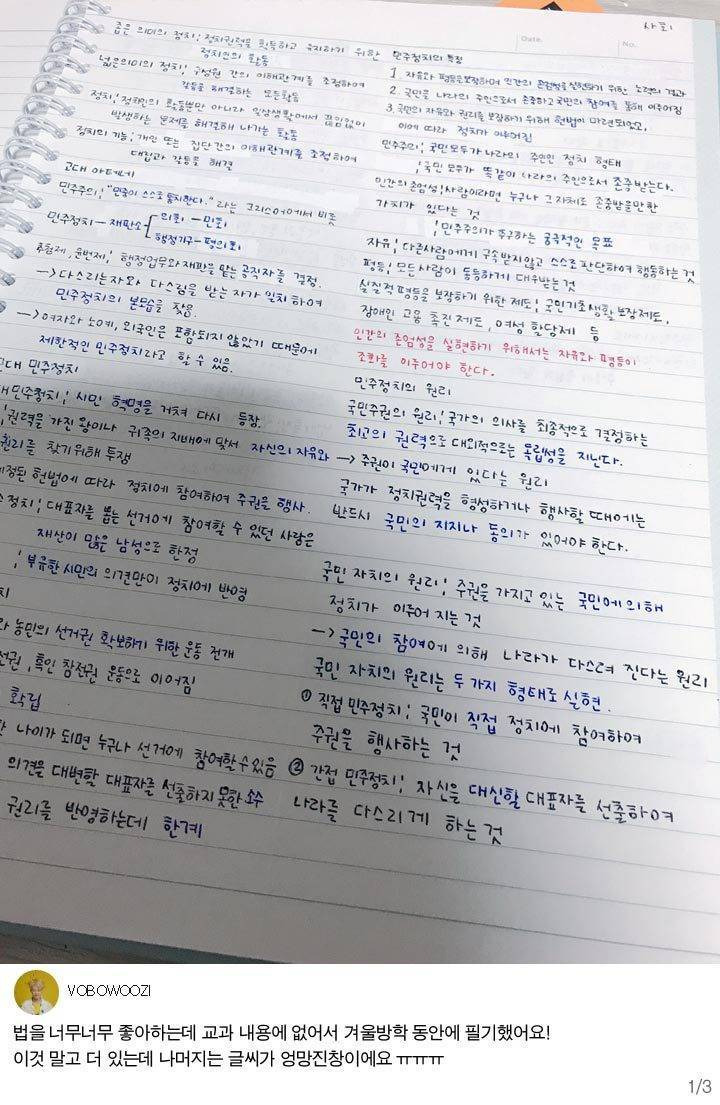 사회
Date.
No.
좁은 의미의 정치; 정치권력을 획득하고 유지하기 위한
정치인의 활동
넓은의미의 정치; 구성원 간의 이해관계를 조정하여
갈등을 해결하는 모든활동
정치; 정치인의 활동뿐만 아니라 일상생활에서 끊임없이
발생하는 문제를 해결해 나가는 활동
정치의 기능; 개인 또는 집단 간의 이해관계를 조정하여
대립과 갈등을 해결
고대 아테네
민주주의; "민중이 스스로 통치한다." 라는 그리스어에서 비롯
민주정치 - 재판소
의회 - 민회
행정기구 - 평의회
추첨제, 윤번제; 행정업무와 재판을 맡는 공직자를 결정.
→ 다스리는자와 다스림을 받는 자가 일치 하여
민주정치의 본모습을 찾음.
→ 여자와 노예, 외국인은 포함되지 않았기 때문에
제한적인 민주정치라고 할 수 있음.
근대 민주정치
민주정치; 시민 혁명을 거쳐 다시 등장.
; 권력을 가진 왕이나 귀족의 지배에 맞서 자신의 자유와
권리를 찾기위해 투쟁
제정된 헌법에 따라 정치에 참여하여 주권을 행사.
정치; 대표자를 뽑는 선거에 참여할 수 있던 사람은
재산이 많은 남성으로 한정
; 부유한 시민의 의견만이 정치에 반영
농민의 선거권 확보하기 위한 운동 전개
흑인 참정권 운동으로 이어짐
확립
나이가 되면 누구나 선거에 참여할수 있음
의견을 대변할 대표자를 선출하지 못한 소수
권리를 반영하는데 한계
민주정치의 특징
1. 자유와 평등을보장하여 인간의 존엄성을 실현하기 위한 노력의 결과
2. 국민을 나라의 주인으로서 존중하고 국민의 참여를 통해 이루어짐
3. 국민의 자유와 권리를 보장하기 위해 헌법이 마련되었고,
이에 따라 정치가 이루어짐
민주주의; 국민 모두가 나라의 주인인 정치 형태
; 국민 모두가 똑같이 나라의 주인으로서 존중받는다.
인간의 존엄성; 사람이라면 누구나 그 자체로 존중받을만한
가치가 있다는 것
; 민주주의가 추구하는 궁극적인 목표
자유; 다른사람에게 구속받지않고 스스로 판단하여 행동하는 것
평등; 모든사람이 동등하게 대우받는 것
실질적평등을 보장하기 위한 제도; 국민기초생활 보장제도,
장애인 고용 촉진 제도, 여성 할당제 등
인간의 존엄성을 실현하기 위해서는 자유와 평등이
조화를 이루어야 한다.
민주정치의 원리
국민주권의 원리; 국가의 의사를 최종적으로 결정하는
최고의 권력으로 대외적으로는 독립성을 지닌다.
→ 주권이 국민에게 있다는 원리
국가가 정치권력을 형성하거나 행사할 때에는
반드시 국민의 지지나 동의가 있어야 한다.
국민 자치의 원리; 주권을 가지고 있는 국민에 의해
정치가 이루어 지는 것
→ 국민의 참여에 의해 나라가 다스려 진다는 원리
국민 자치의 원리는 두 가지 형태로 실현.
① 직접 민주정치; 국민이 직접 정치에 참여하여
주권을 행사하는 것
② 간접 민주정치; 자신을 대신할 대표자를 선출하여
나라를 다스리게 하는 것
VOBOWOOZI
법을 너무너무 좋아하는데 교과 내용에 없어서 겨울방학 동안에 필기했어요!
이것 말고 더 있는데 나머지는 글씨가 엉망진창이에요 ㅠㅠㅠ
1/3